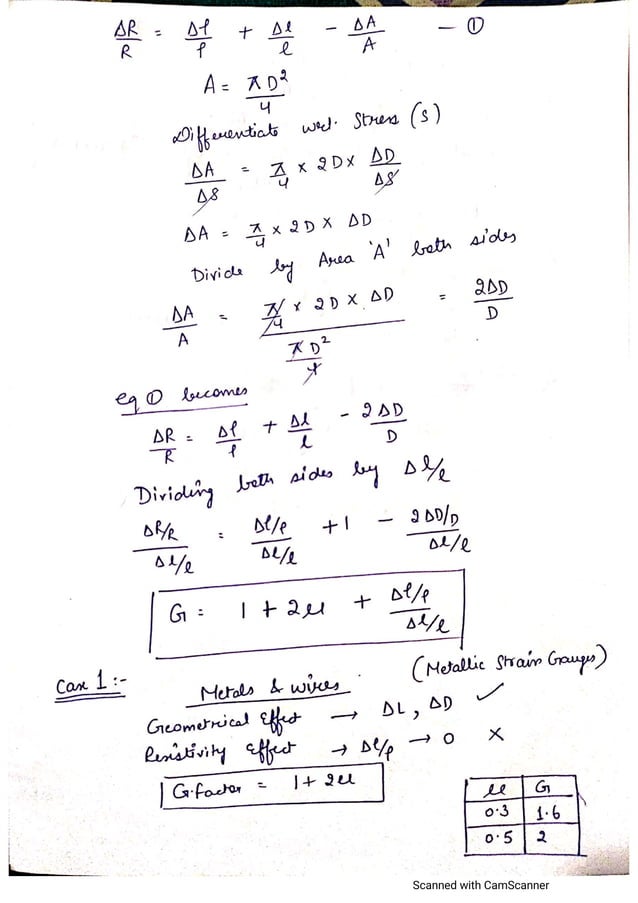 ΔR/R = Δρ/ρ + Δl/l - ΔA/A - ①
A = πD²/4
Differentiate w.r.t. Stress (s)
ΔA/ΔS = π/4 × 2D × ΔD/ΔS
ΔA = π/4 × 2D × ΔD
Divide by Area 'A' both sides
ΔA/A = (π/4 × 2D × ΔD)/(πD²/4) = 2ΔD/D
eq ① becomes
ΔR/R = Δρ/ρ + Δl/l - 2ΔD/D
Dividing both sides by Δl/l
(ΔR/R)/(Δl/l) = (Δρ/ρ)/(Δl/l) + 1 - (2ΔD/D)/(Δl/l)
G = 1 + 2μ + (Δρ/ρ)/(Δl/l)
Case 1 :- (Metallic Strain Gauges)
Metals & wires
Geometrical Effect → ΔL, ΔD ✓
Resistivity effect → Δρ/ρ → 0 ×
G.factor = 1 + 2μ
μ G
0.3 1.6
0.5 2
Scanned with CamScanner